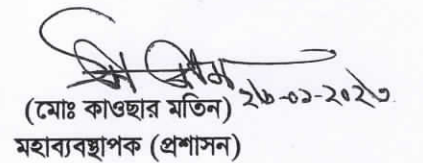 ২৬-০১-২০২৩
(মোঃ কাওছার মতিন)
মহাব্যবস্থাপক (প্রশাসন)